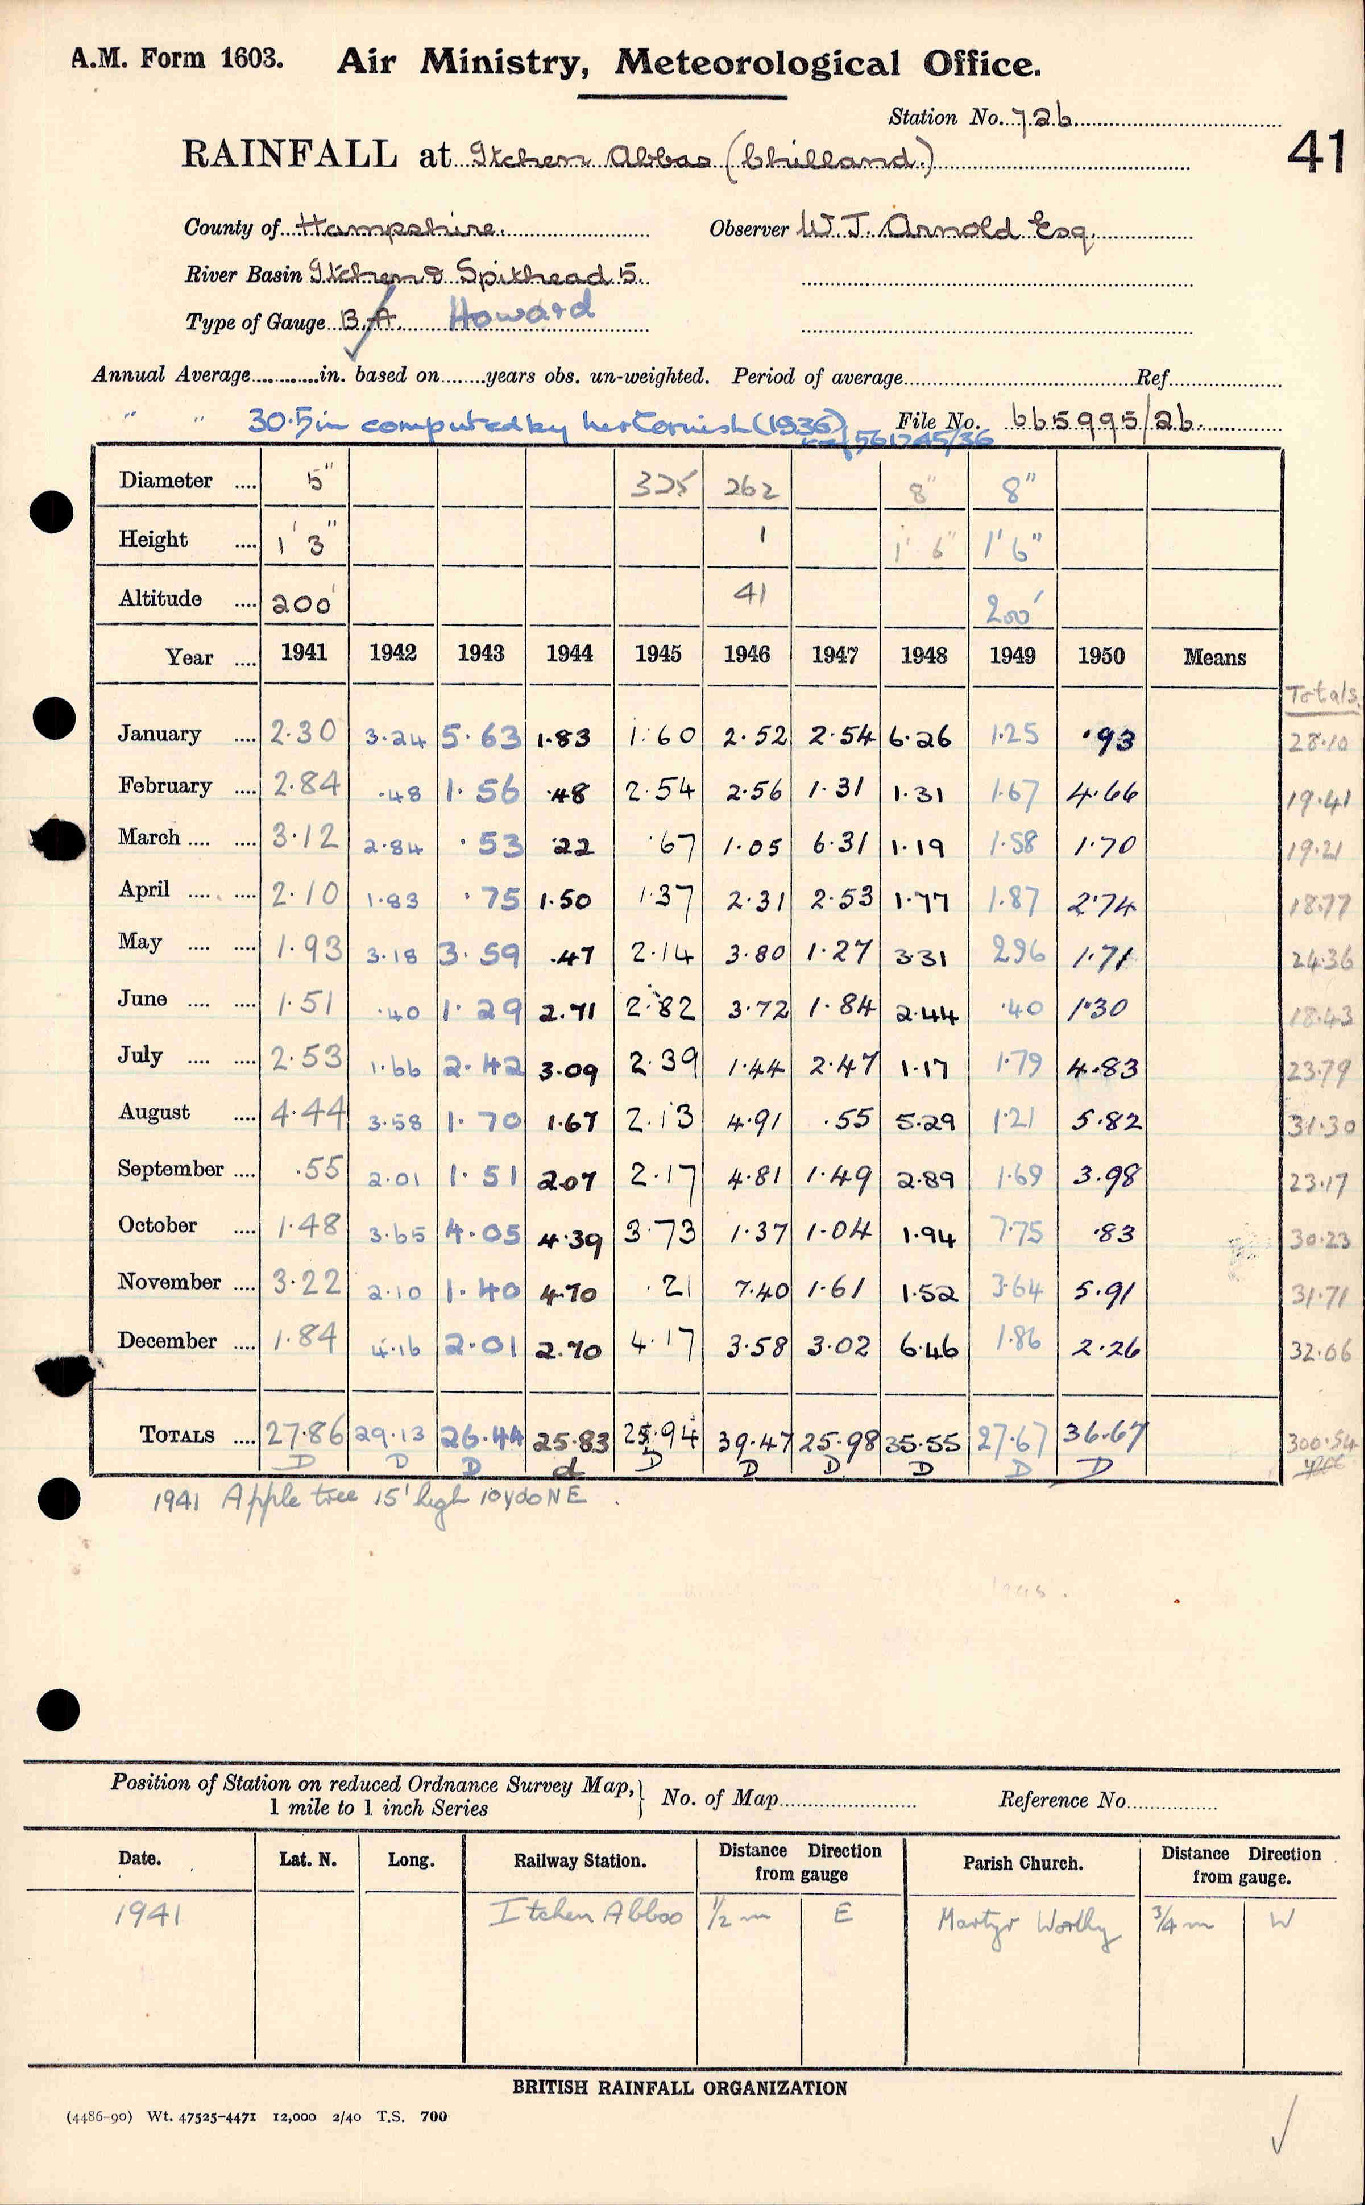 A.M. Form 1603. Air Ministry, Meteorological Office.
Station No. 726
RAINFALL at Itchen Abbas (Chilland.) 41
County of Hampshire. Observer W. J. Arnold Esq.
River Basin Itchen & Spithead 5.
Type of Gauge B.A. Howard
Annual Average............in. based on........years obs. un-weighted. Period of average............Ref............
" " 30.5 in computed by (1936) File No. 665995/26.
561745/36
Diameter .... 5" 325 262 8" 8"
Height .... 1' 3" 1 1' 6" 1' 6"
Altitude .... 200' 41 200'
Year .... 1941 1942 1943 1944 1945 1946 1947 1948 1949 1950 Means
Totals
January .... 2.30 3.24 5.63 1.83 1.60 2.52 2.54 6.26 1.25 .93 28.10
February .... 2.84 .48 1.56 .48 2.54 2.56 1.31 1.31 1.67 4.66 19.41
March .... .... 3.12 2.84 .53 .22 .67 1.05 6.31 1.19 1.58 1.70 19.21
April .... .... 2.10 1.83 .75 1.50 1.37 2.31 2.53 1.77 1.87 2.74 18.77
May .... .... 1.93 3.18 3.59 .47 2.14 3.80 1.27 3.31 2.96 1.71 24.36
June .... .... 1.51 .40 1.29 2.71 2.82 3.72 1.84 2.44 .40 1.30 18.43
July .... .... 2.53 1.66 2.42 3.09 2.39 1.44 2.47 1.17 1.79 4.83 23.79
August .... 4.44 3.58 1.70 1.67 2.13 4.91 .55 5.29 1.21 5.82 31.30
September .... .55 2.01 1.51 2.07 2.17 4.81 1.49 2.89 1.69 3.98 23.17
October .... 1.48 3.65 4.05 4.39 3.73 1.37 1.04 1.94 7.75 .83 30.23
November .... 3.22 2.10 1.40 4.70 .21 7.40 1.61 1.52 3.64 5.91 31.71
December .... 1.84 4.16 2.01 2.70 4.17 3.58 3.02 6.46 1.86 2.26 32.06
TOTALS .... 27.86 29.13 26.44 25.83 25.94 39.47 25.98 35.55 27.67 36.67 300.54
D D D d D D D D D D
1941 Apple tree 15' high 10 yds NE.
Position of Station on reduced Ordnance Survey Map, 1 mile to 1 inch Series } No. of Map............ Reference No............
Date. Lat. N. Long. Railway Station. Distance Direction from gauge Parish Church. Distance Direction from gauge.
1941 Itchen Abbas 1/2 m E Martyr Worthy 3/4 m W
BRITISH RAINFALL ORGANIZATION
(4486-90) Wt. 47525-4471 12,000 2/40 T.S. 700